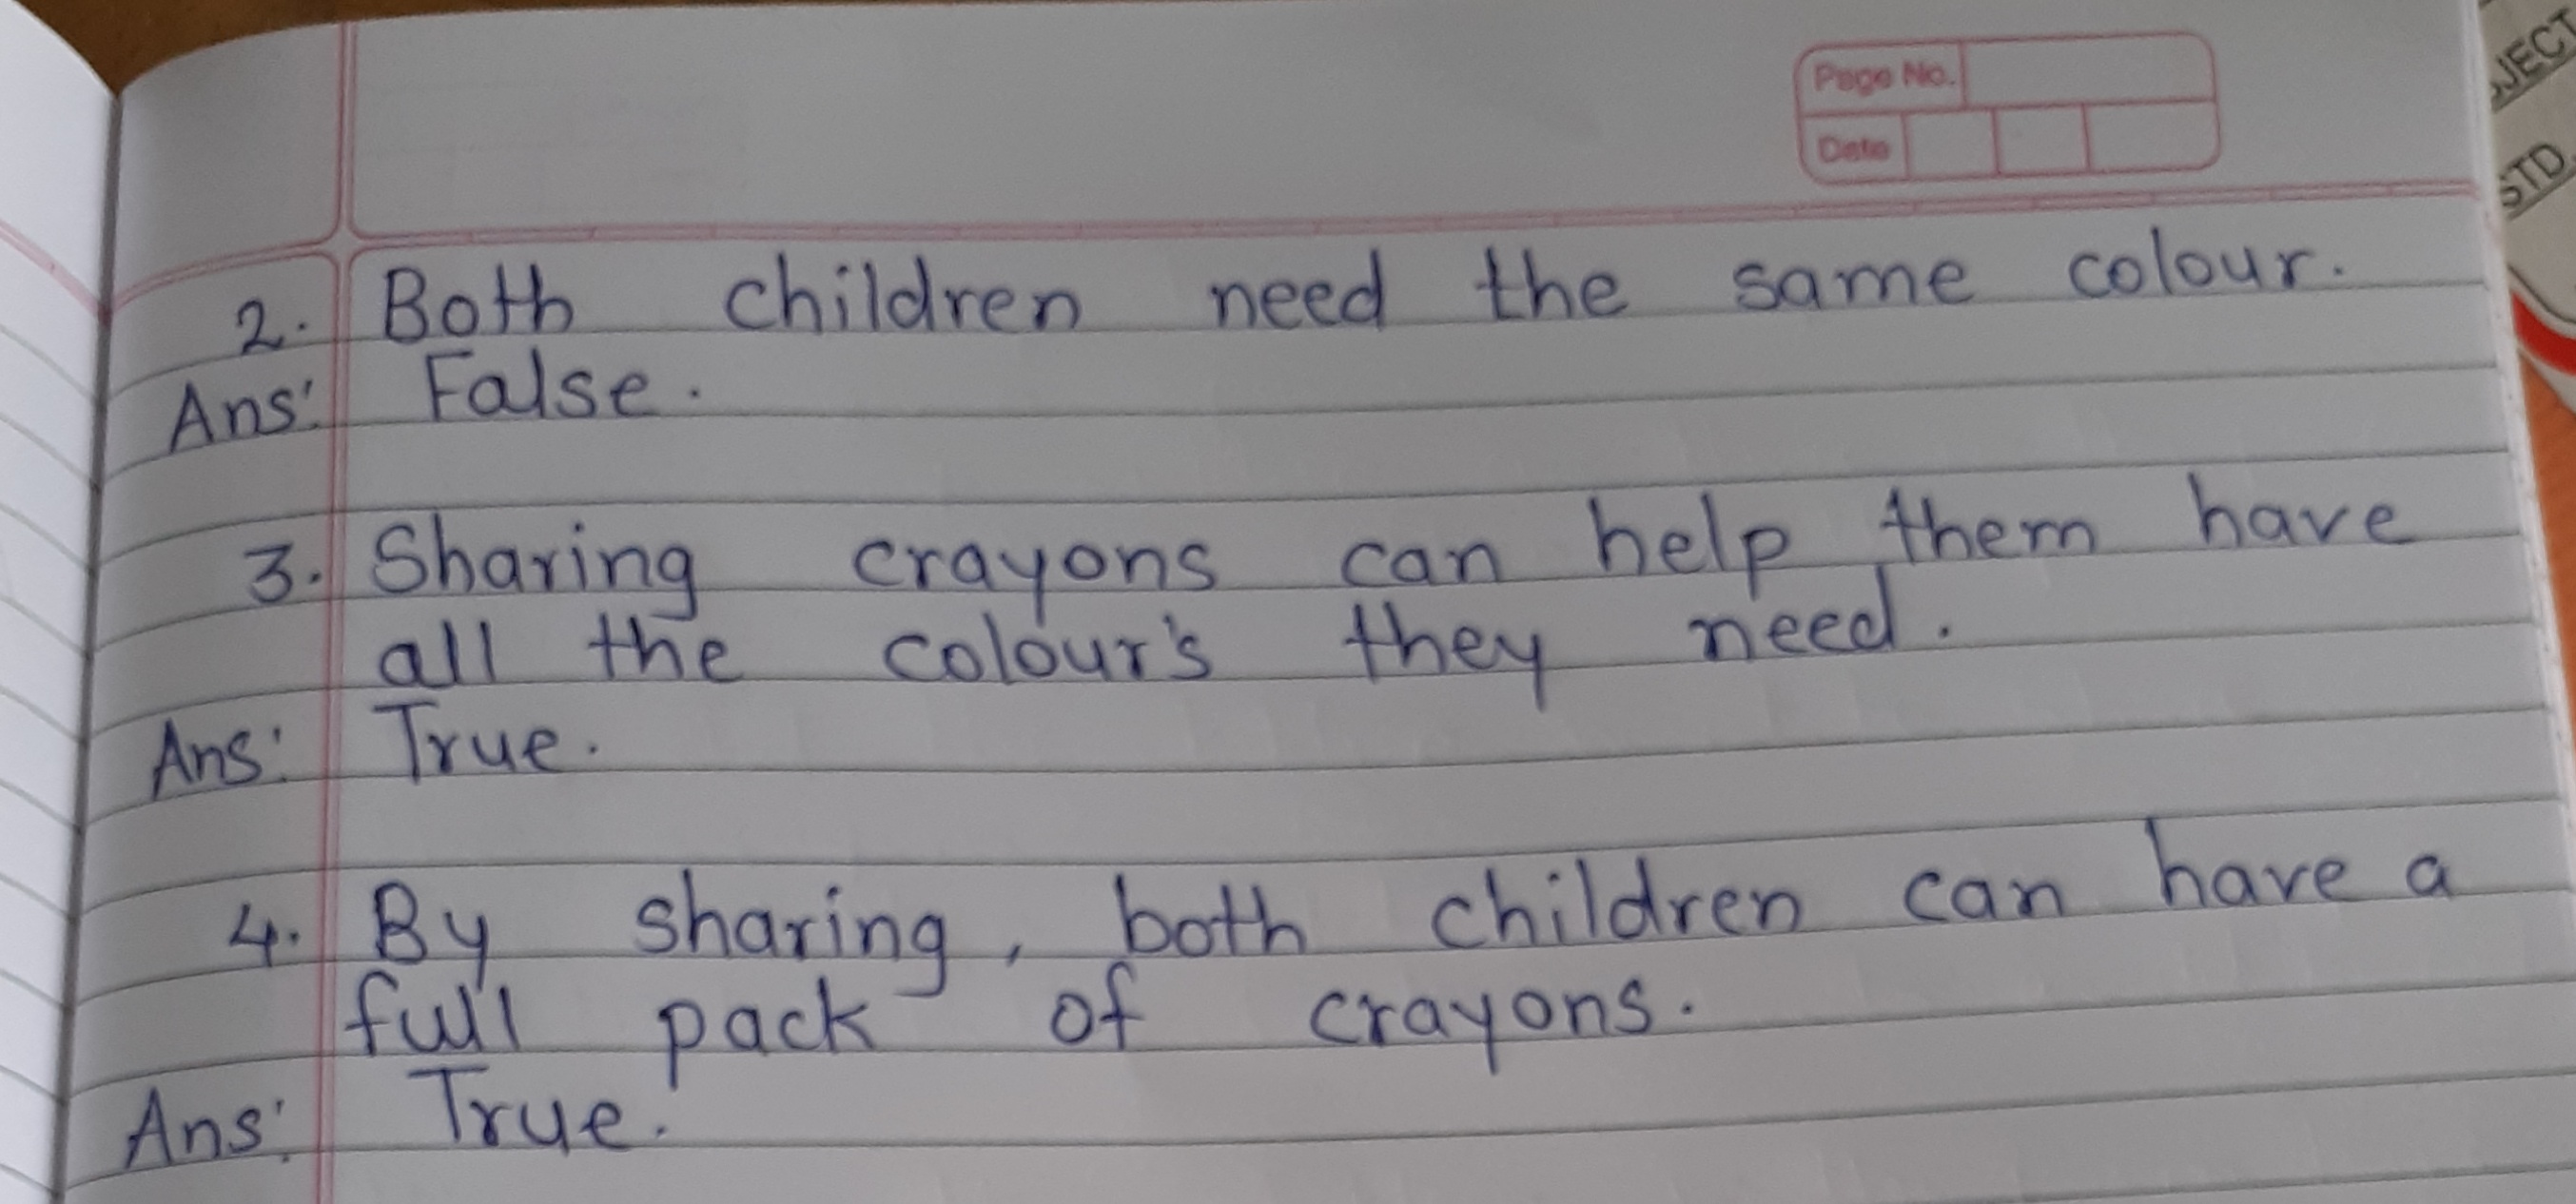 Page No.
Date
JECT
STD.
2. Both children need the same colour.
Ans: False.
3. Sharing crayons can help them have
all the colour's they need.
Ans: True.
4. By sharing, both children can have a
full pack of crayons.
Ans: True.